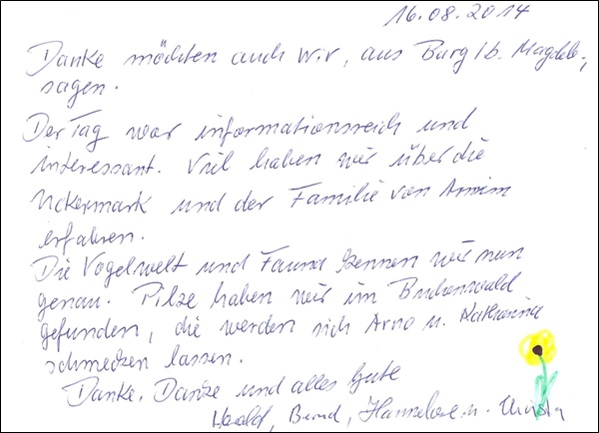 16.08.2014
Danke möchten auch wir, aus Burg/b. Magdeb.,
sagen.
Der Tag war informationsreich und
interessant. Viel haben wir über die
Uckermark und der Familie von Arnim
erfahren.
Die Vogelwelt und Fauna kennen wir nun
genau. Pilze haben wir im Buchenwald
gefunden, die werden sich Arno u. Katharina
schmecken lassen.
Danke, Danke und alles Gute
Harald, Bernd, Hannelore u. Christa